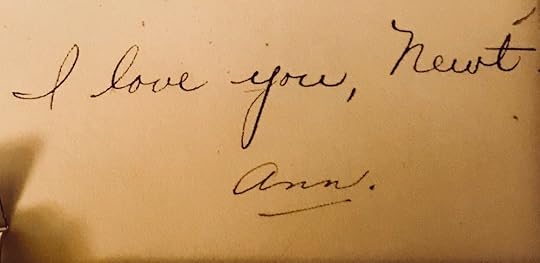 I love you, Newt.
Ann.